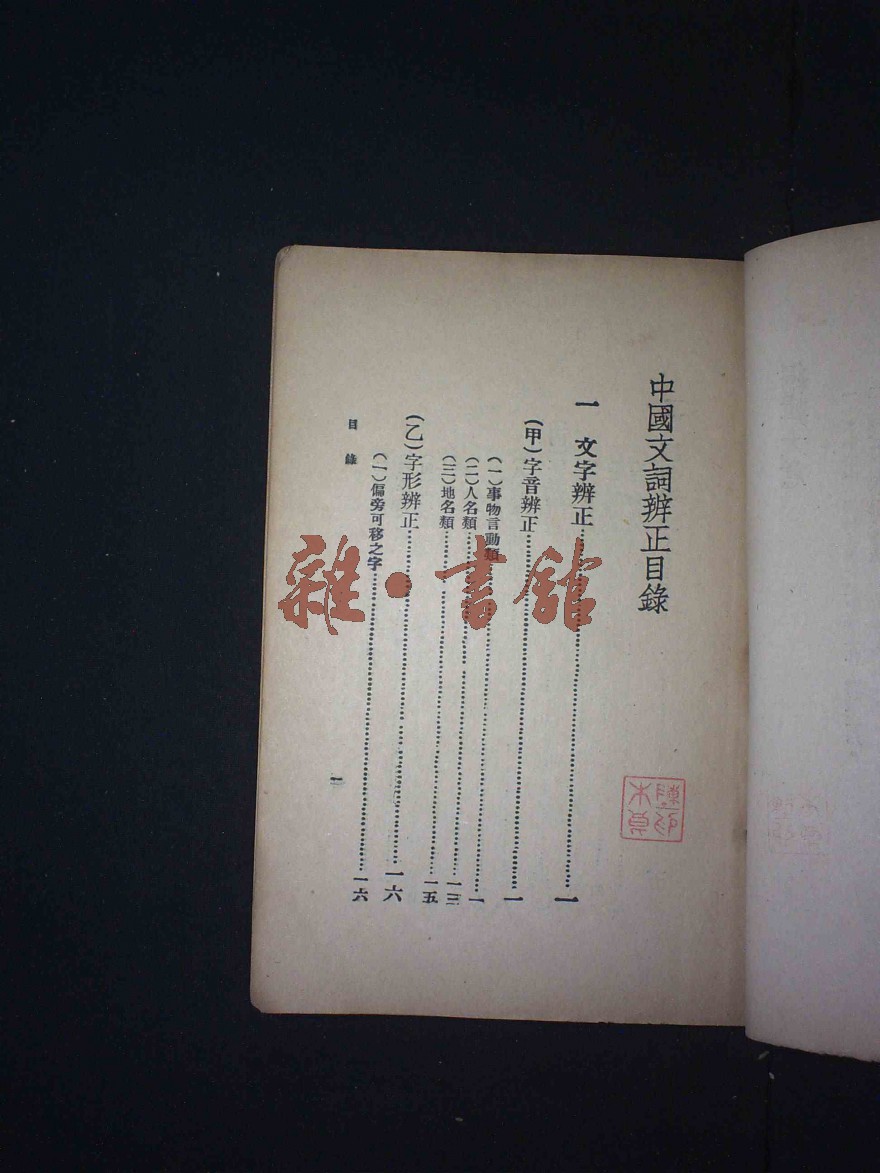 中國文詞辨正目錄
一 文字辨正……………………一
(甲)字音辨正……………………一
(一)事物言動類……………………一
(二)人名類……………………一三
(三)地名類……………………一五
(乙)字形辨正……………………一六
(一)偏旁可移之字……………………一六
目錄
一
雜·書館